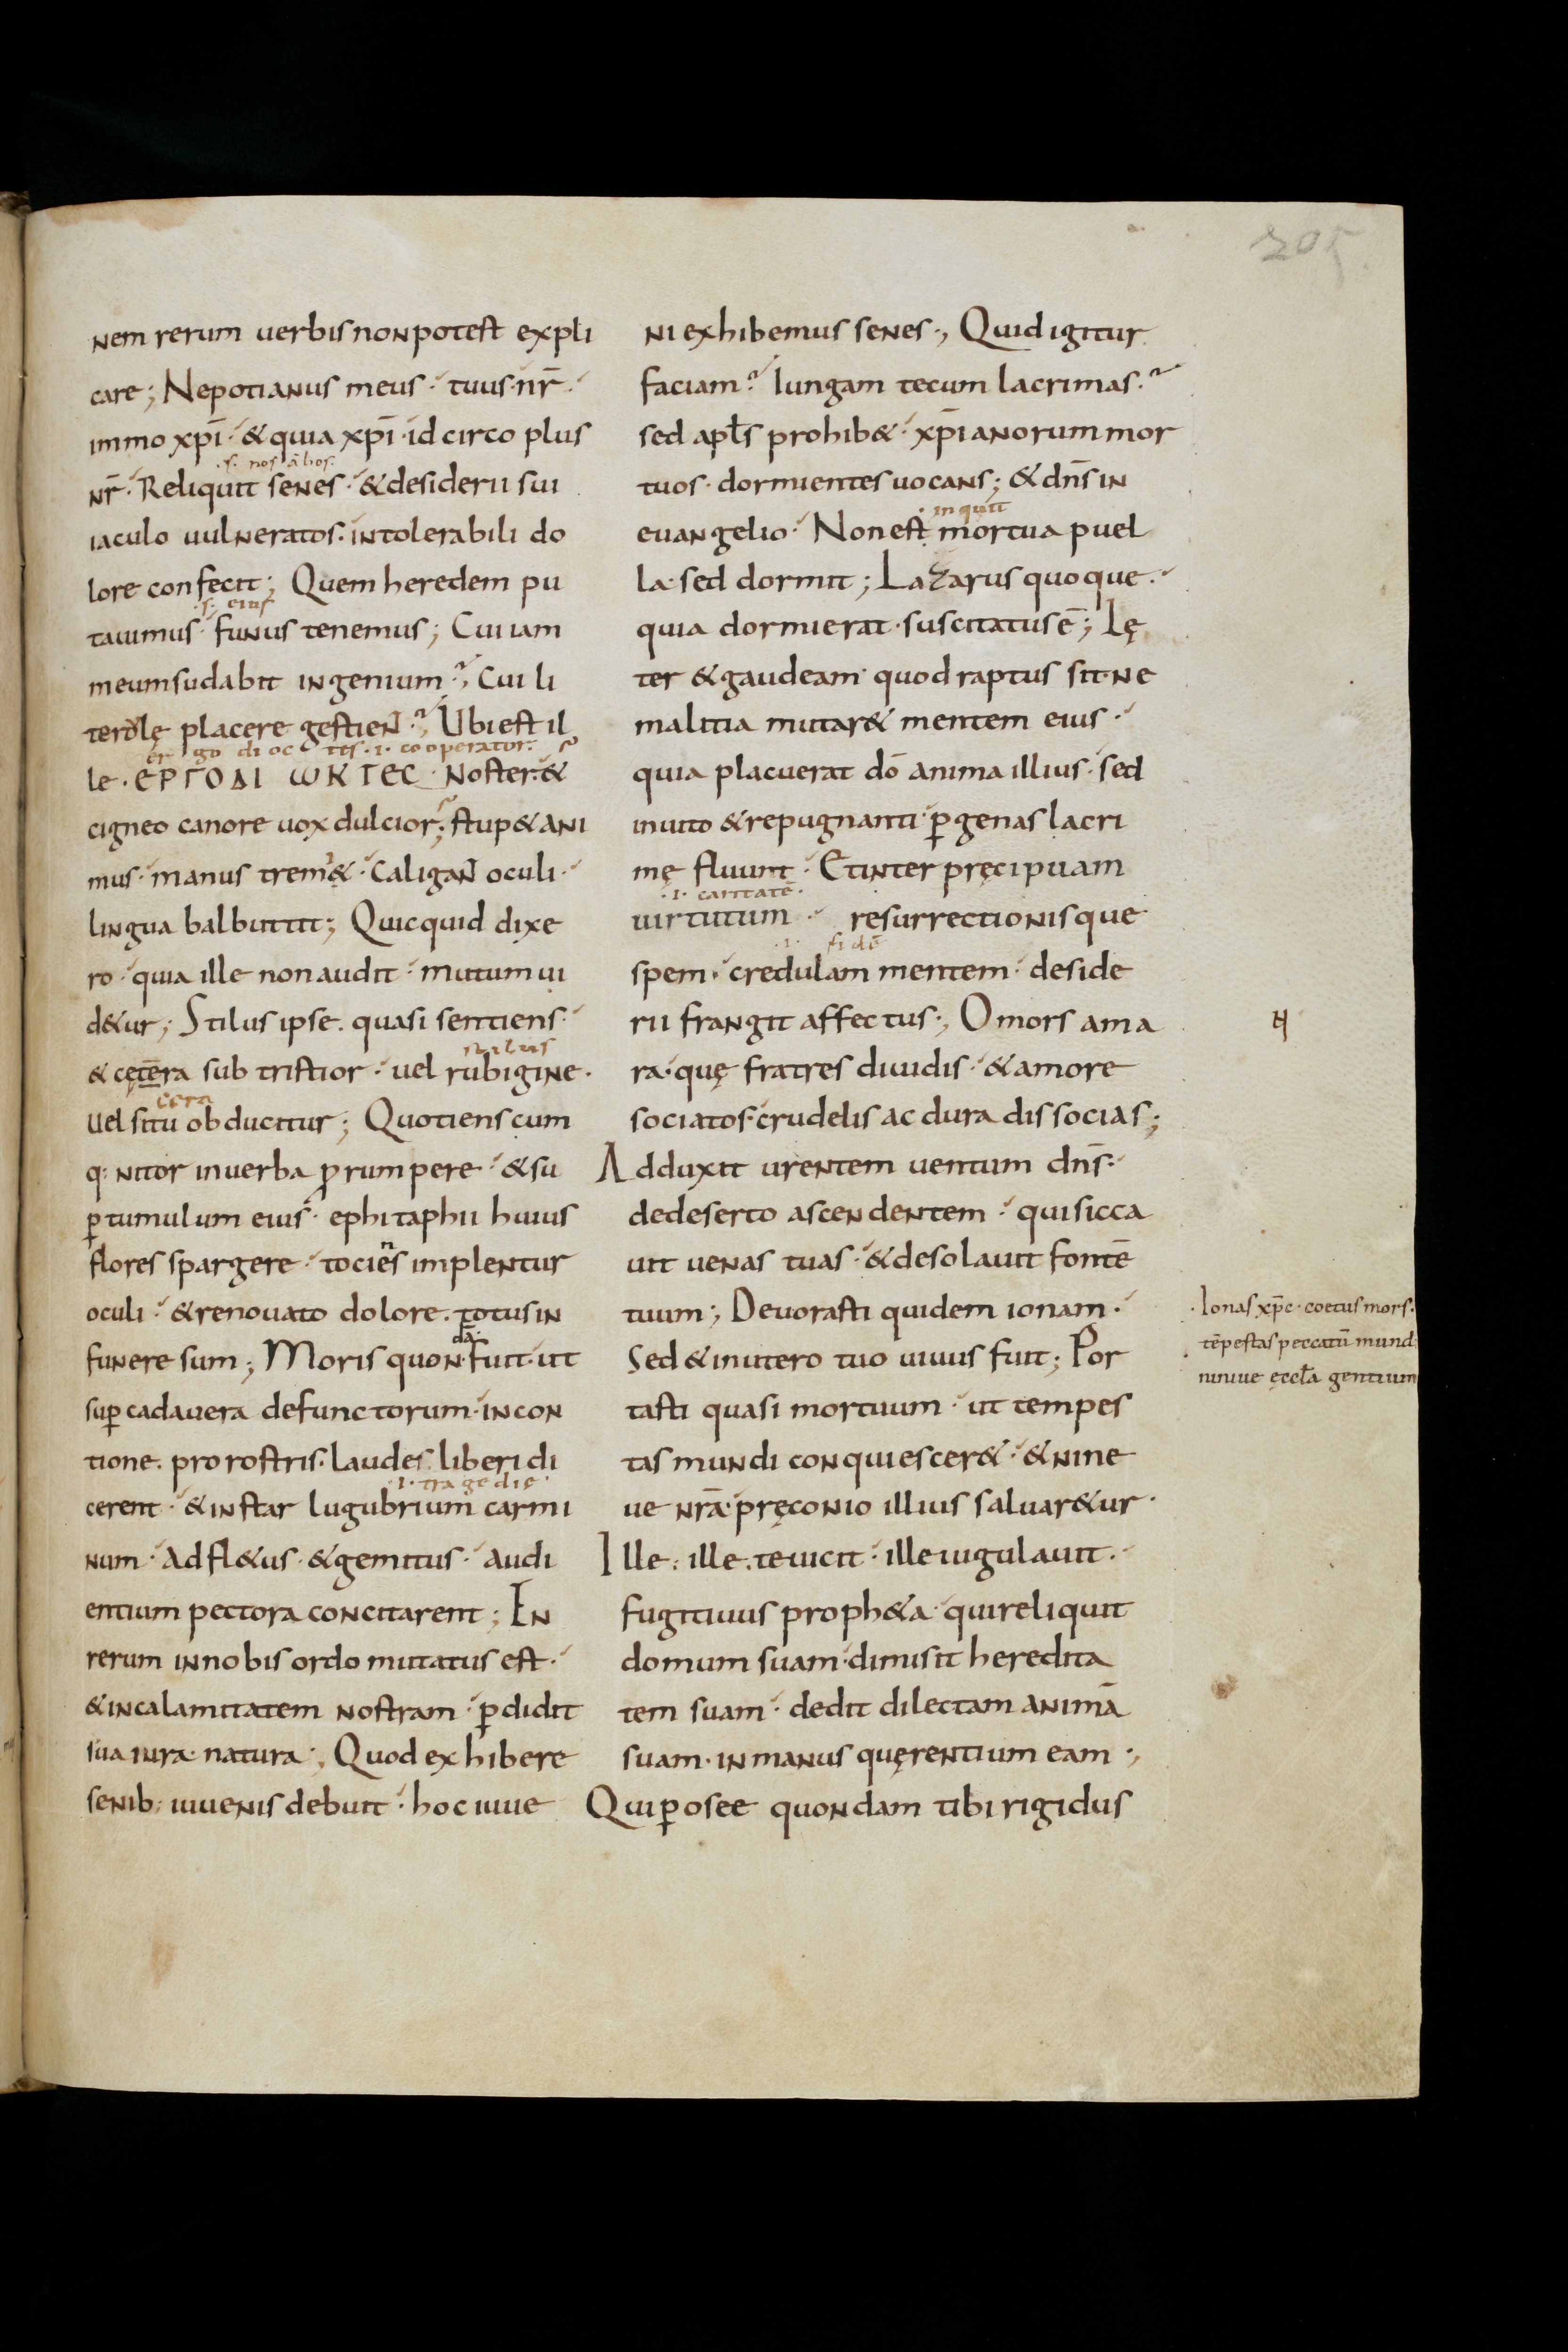 205
nem rerum uerbis non potest expli
care; Nepotianus meus · tuus · nr̄ ·
immo xp̄i · & quia xp̄i · id circo plus
·s· nos ābos·
nr̄ · Reliquit senes · & desiderii sui
iaculo uulneratos · intolerabili do
lore confecit; Quem heredem pu
·s· eius
tauimus · funus tenemus; Cui iam
meum sudabit ingenium?; Cui li
terulę placere gestien̄?; Ubi est il
er go di oc tes ·i· cooperator·
le · ЄΡΓΟΔΙ ωΚΤЄC · Noster · &
cigneo canore uox dulcior; stup& ani
mus · manus trem& · Caligan̄ oculi ·
lingua balbuttit; Quicquid dixe
ro · quia ille non audit · mutum ui
d&ur; Stilus ipse · quasi sentiens ·
stilus
& cętēra sub tristior · uel rubigine ·
cera
uel situ obducitur; Quotiens cum
q: nitor in uerba ꝓrumpere · & su
ꝑ tumulum eius · ephitaphii huius
n
flores spargere · tociēs implentur
oculi · & renouato dolore · totus in
da·
funere sum; Moris quon · fuit · ut
suꝑ cadauera defunctorum · in con
tione · pro rostris · laudes liberi di
·i· tragedię·
cerent · & instar lugubrium carmi
num · ad fl&us · & gemitus · audi
entium pectora concitarent; En
rerum in nobis ordo mutatus est ·
& in calamitatem nostram · ꝑdidit
sua iura natura ·, Quod exhibere
senib: iuuenis debuit · hoc iuue
ni exhibemus senes ·, Quid igitur
faciam? Iungam tecum lacrimas?
sed apłs prohib& · xp̄ianorum mor
tuos · dormientes uocans; & dn̄s in
·inquit
euangelio · Non est mortua puel
la · sed dormit; Lazarus quoque ·
quia dormierat · suscitatus ē; Lę
ter & gaudeam · quod raptus sit · ne
malitia mutar& mentem eius ·
quia placuerat dō anima illius · sed
inuito & repugnanti · ꝑ genas lacri
mę fluunt · Et inter pręcipuam
·i· caritatē·
uirtutum · resurrectionisque
·i· fidē
spem · credulam mentem · deside
rii frangit affectus ·, O mors ama
ra · quę fratres diuidis · & amore
sociatos · crudelis ac dura dissocias;
Adduxit urentem uentum dn̄s ·
de deserto ascendentem · qui sicca
uit uenas tuas · & desolauit fontē
tuum; Deuorasti quidem ionam ·
Sed & in utero tuo uiuus fuit; Por
tasti quasi mortuum · ut tempes
tas mundi conquiescer& · & nine
ue nrā · pręconio illius saluar&ur ·
Ille · ille · te uicit · ille iugulauit ·
fugitiuus proph&a · qui reliquit
domum suam · dimisit heredita
tem suam · dedit dilectam animā
suam · in manus quęrentium eam ·,
Qui ꝑ osee quondam tibi rigidus
·Ionas xp̄c · coetus mors·
tēpestas peccatū mund
niniue ęccła gentium